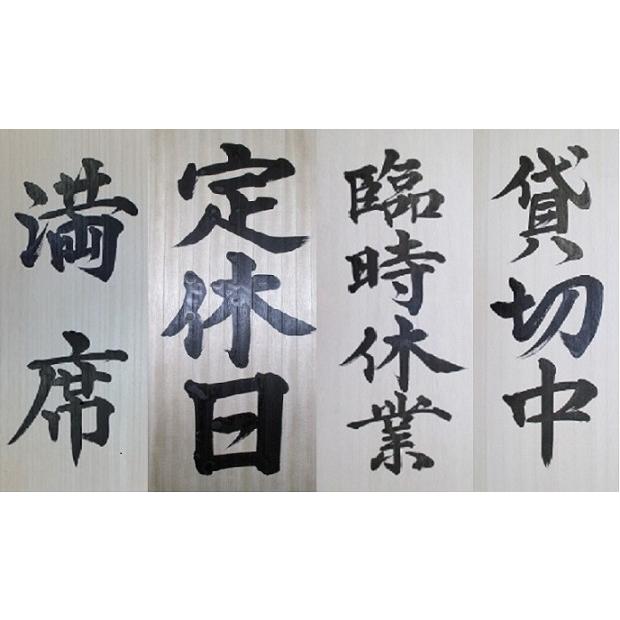 満席
定休日
臨時休業
貸切中